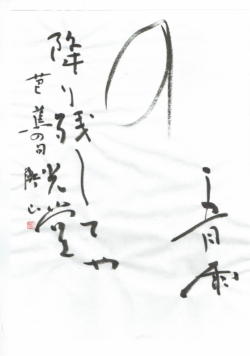 五月雨
の
降り残してや
光堂
芭蕉の句